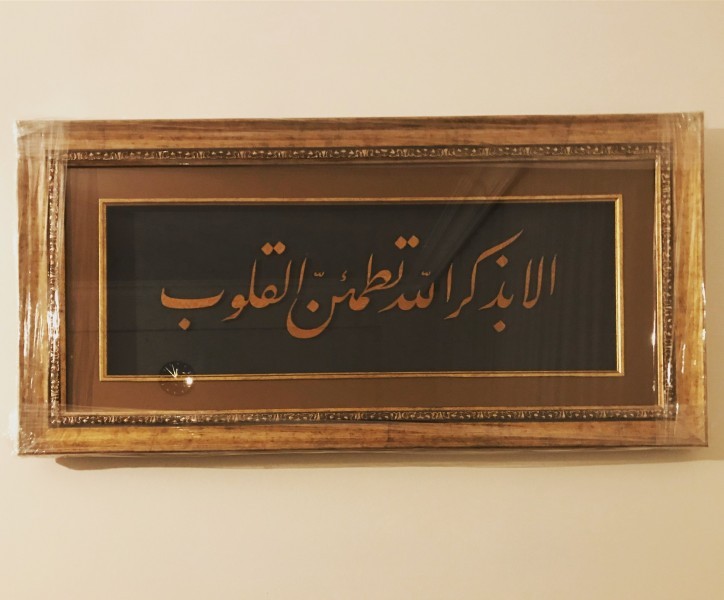 الا بذكر الله تطمئنّ القلوب